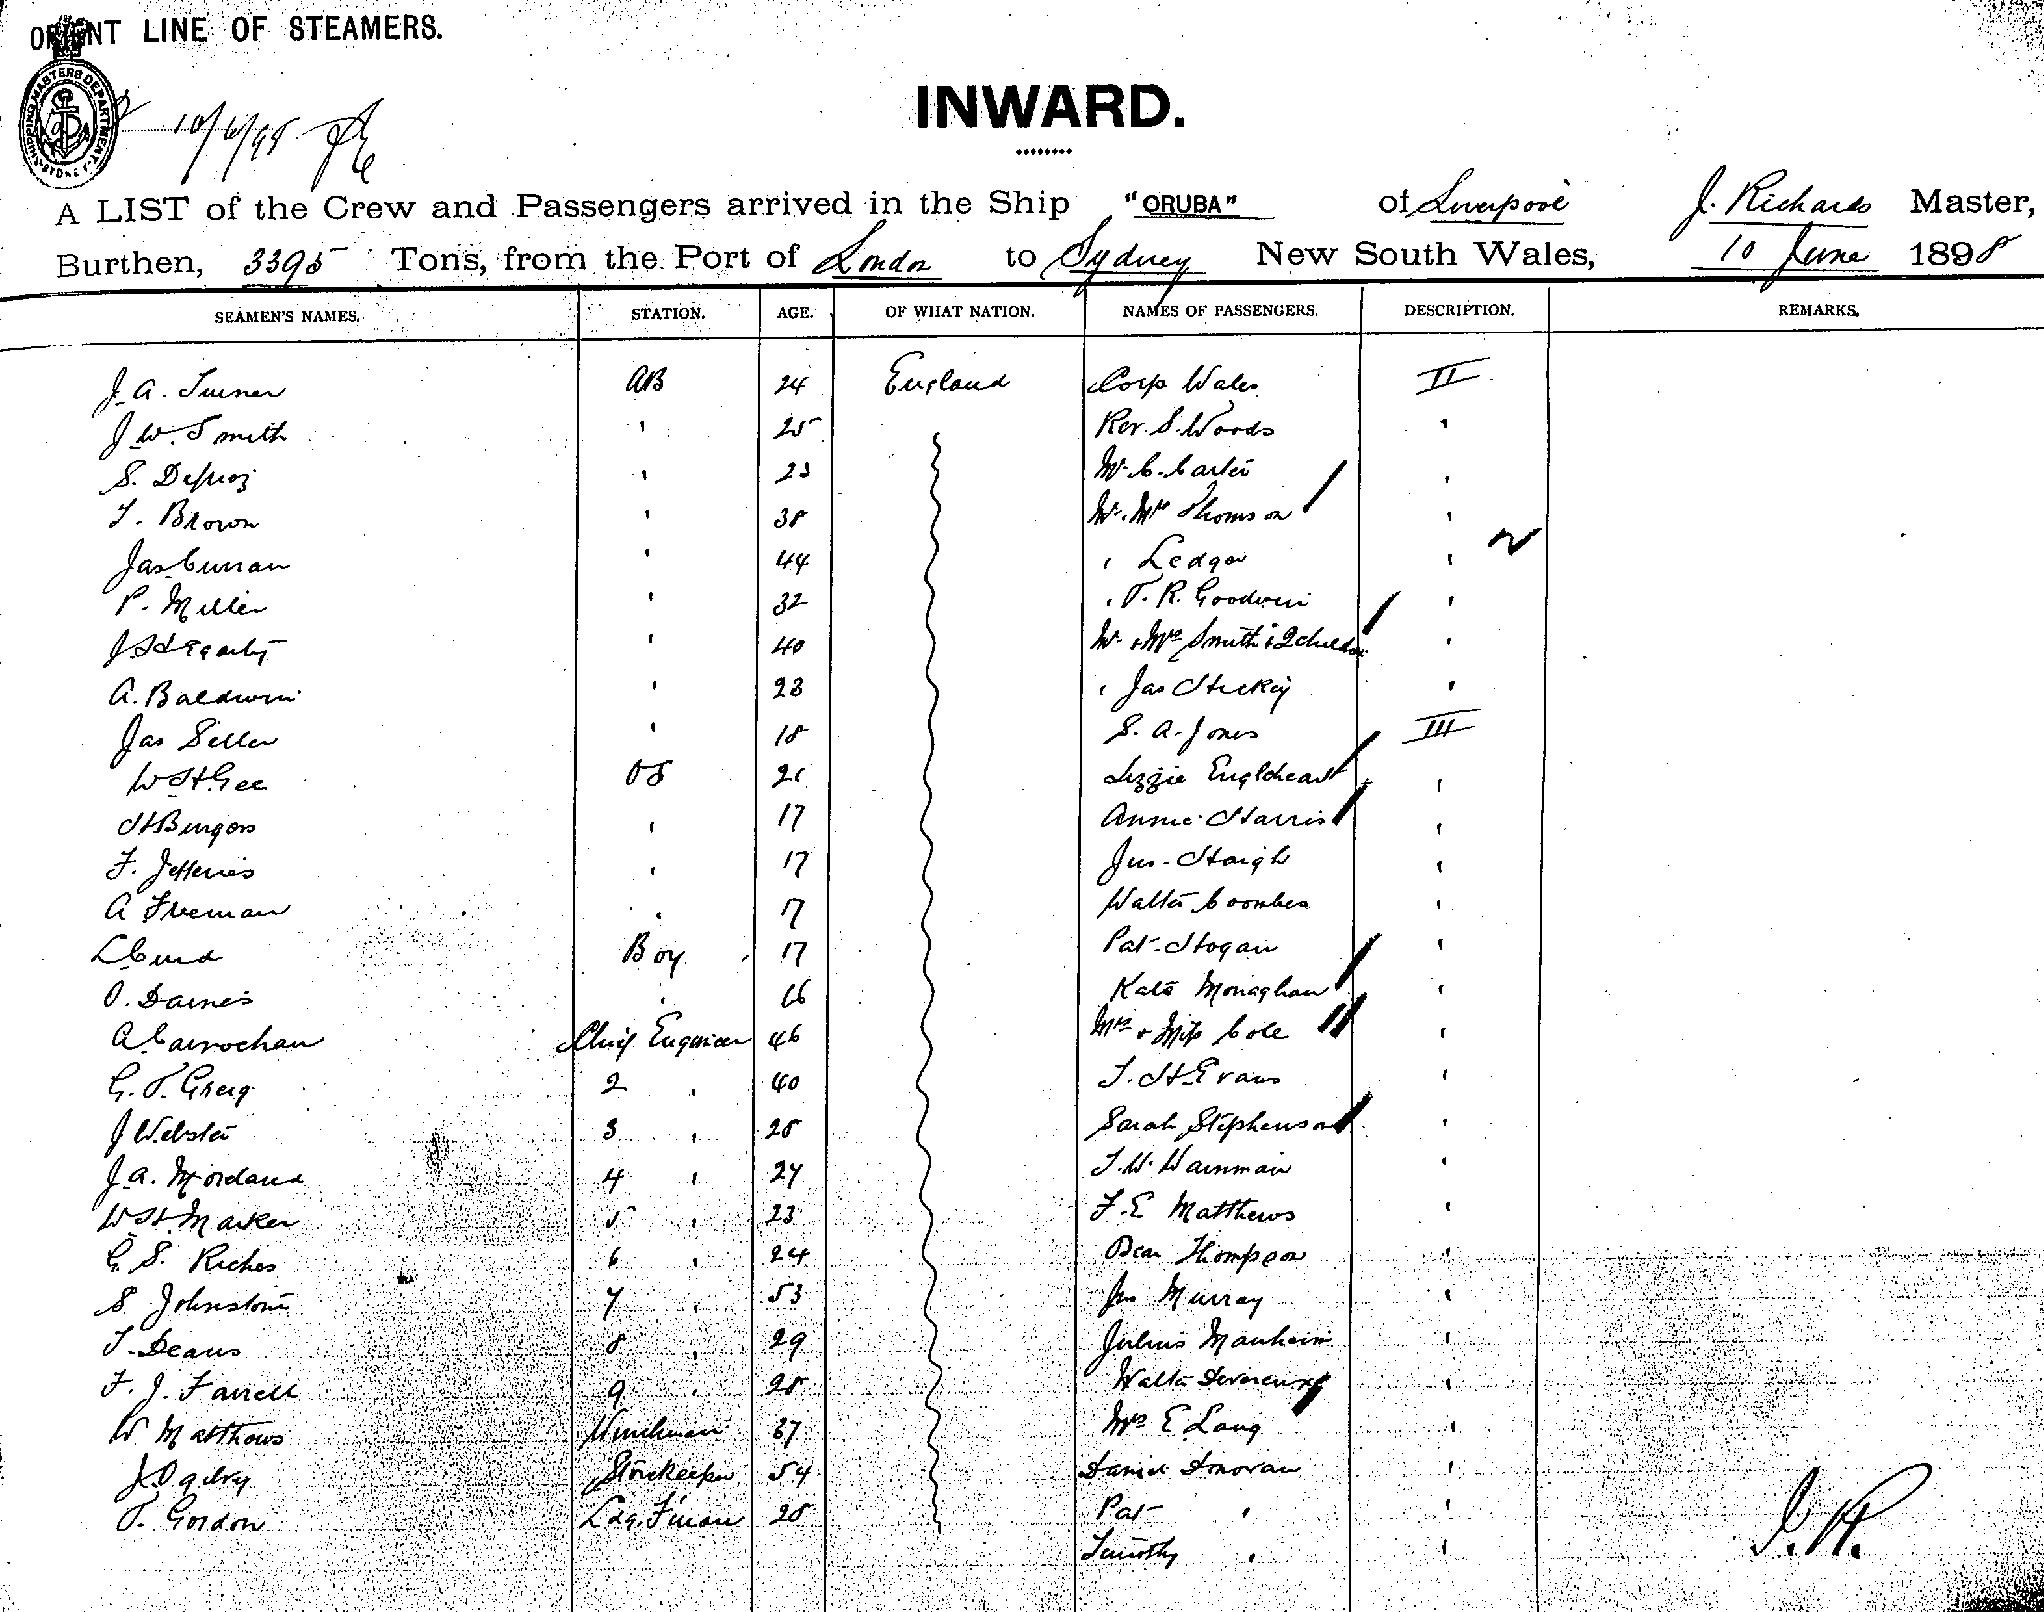 ORIENT LINE OF STEAMERS.
SHIPPING MASTERS DEPARTMENT
10/6/98
INWARD.
A LIST of the Crew and Passengers arrived in the Ship "ORUBA" of Liverpool J. Richards Master,
Burthen, 3395 Tons, from the Port of London to Sydney New South Wales, 10 June 1898
SEAMEN'S NAMES. STATION. AGE. OF WHAT NATION. NAMES OF PASSENGERS. DESCRIPTION. REMARKS.
J. A. Turner AB 24 England Corp Wales II
J. W. Smith " 25 Rev. S. Woods "
S. " 23 Mr. C. Carter "
T. Brown " 38 Mr. Mrs Thomson "
Jas Curran " 44 " Ledger "
P. Miller " 32 " T. R. Goodwin "
J Hegarty " 40 Mr. & Mrs Smith & 2 children "
A. Baldwin " 23 " Jas Hickey "
Jas Seller " 18 S. A. Jones III
W H Gee OS 21 Lizzie Engleheart "
H Burgess " 17 Annie Harris "
F. Jefferies " 17 Jas. Haigh "
A Freeman " 17 Walter Coombes "
L Curd Boy 17 Pat. Hogan "
O. Daines " 16 Kate Monaghan "
A. Carnochan Chief Engineer 46 Mrs & Miss Cole "
G. T. Greig 2 " 40 T. H. Evans "
J Webster 3 " 28 Sarah Stephenson "
J. A. Mordaud 4 " 27 T. W. Wainman "
W. H. Marker 5 " 23 F. E Matthews "
G. S. Riches 6 " 24 Thompson "
S Johnstone 7 " 53 Jno Murray "
T. Deans 8 " 29 Julius Manheim "
F. J. Farrell 9 " 28 Walter Devereux "
W Matthews Winchman 37 Mrs E. Lang "
J. Ogilvy Storekeeper 54 Daniel Donovan "
T. Gordon Ldg. F'man 28 Pat " "
Timothy " "
J.H.